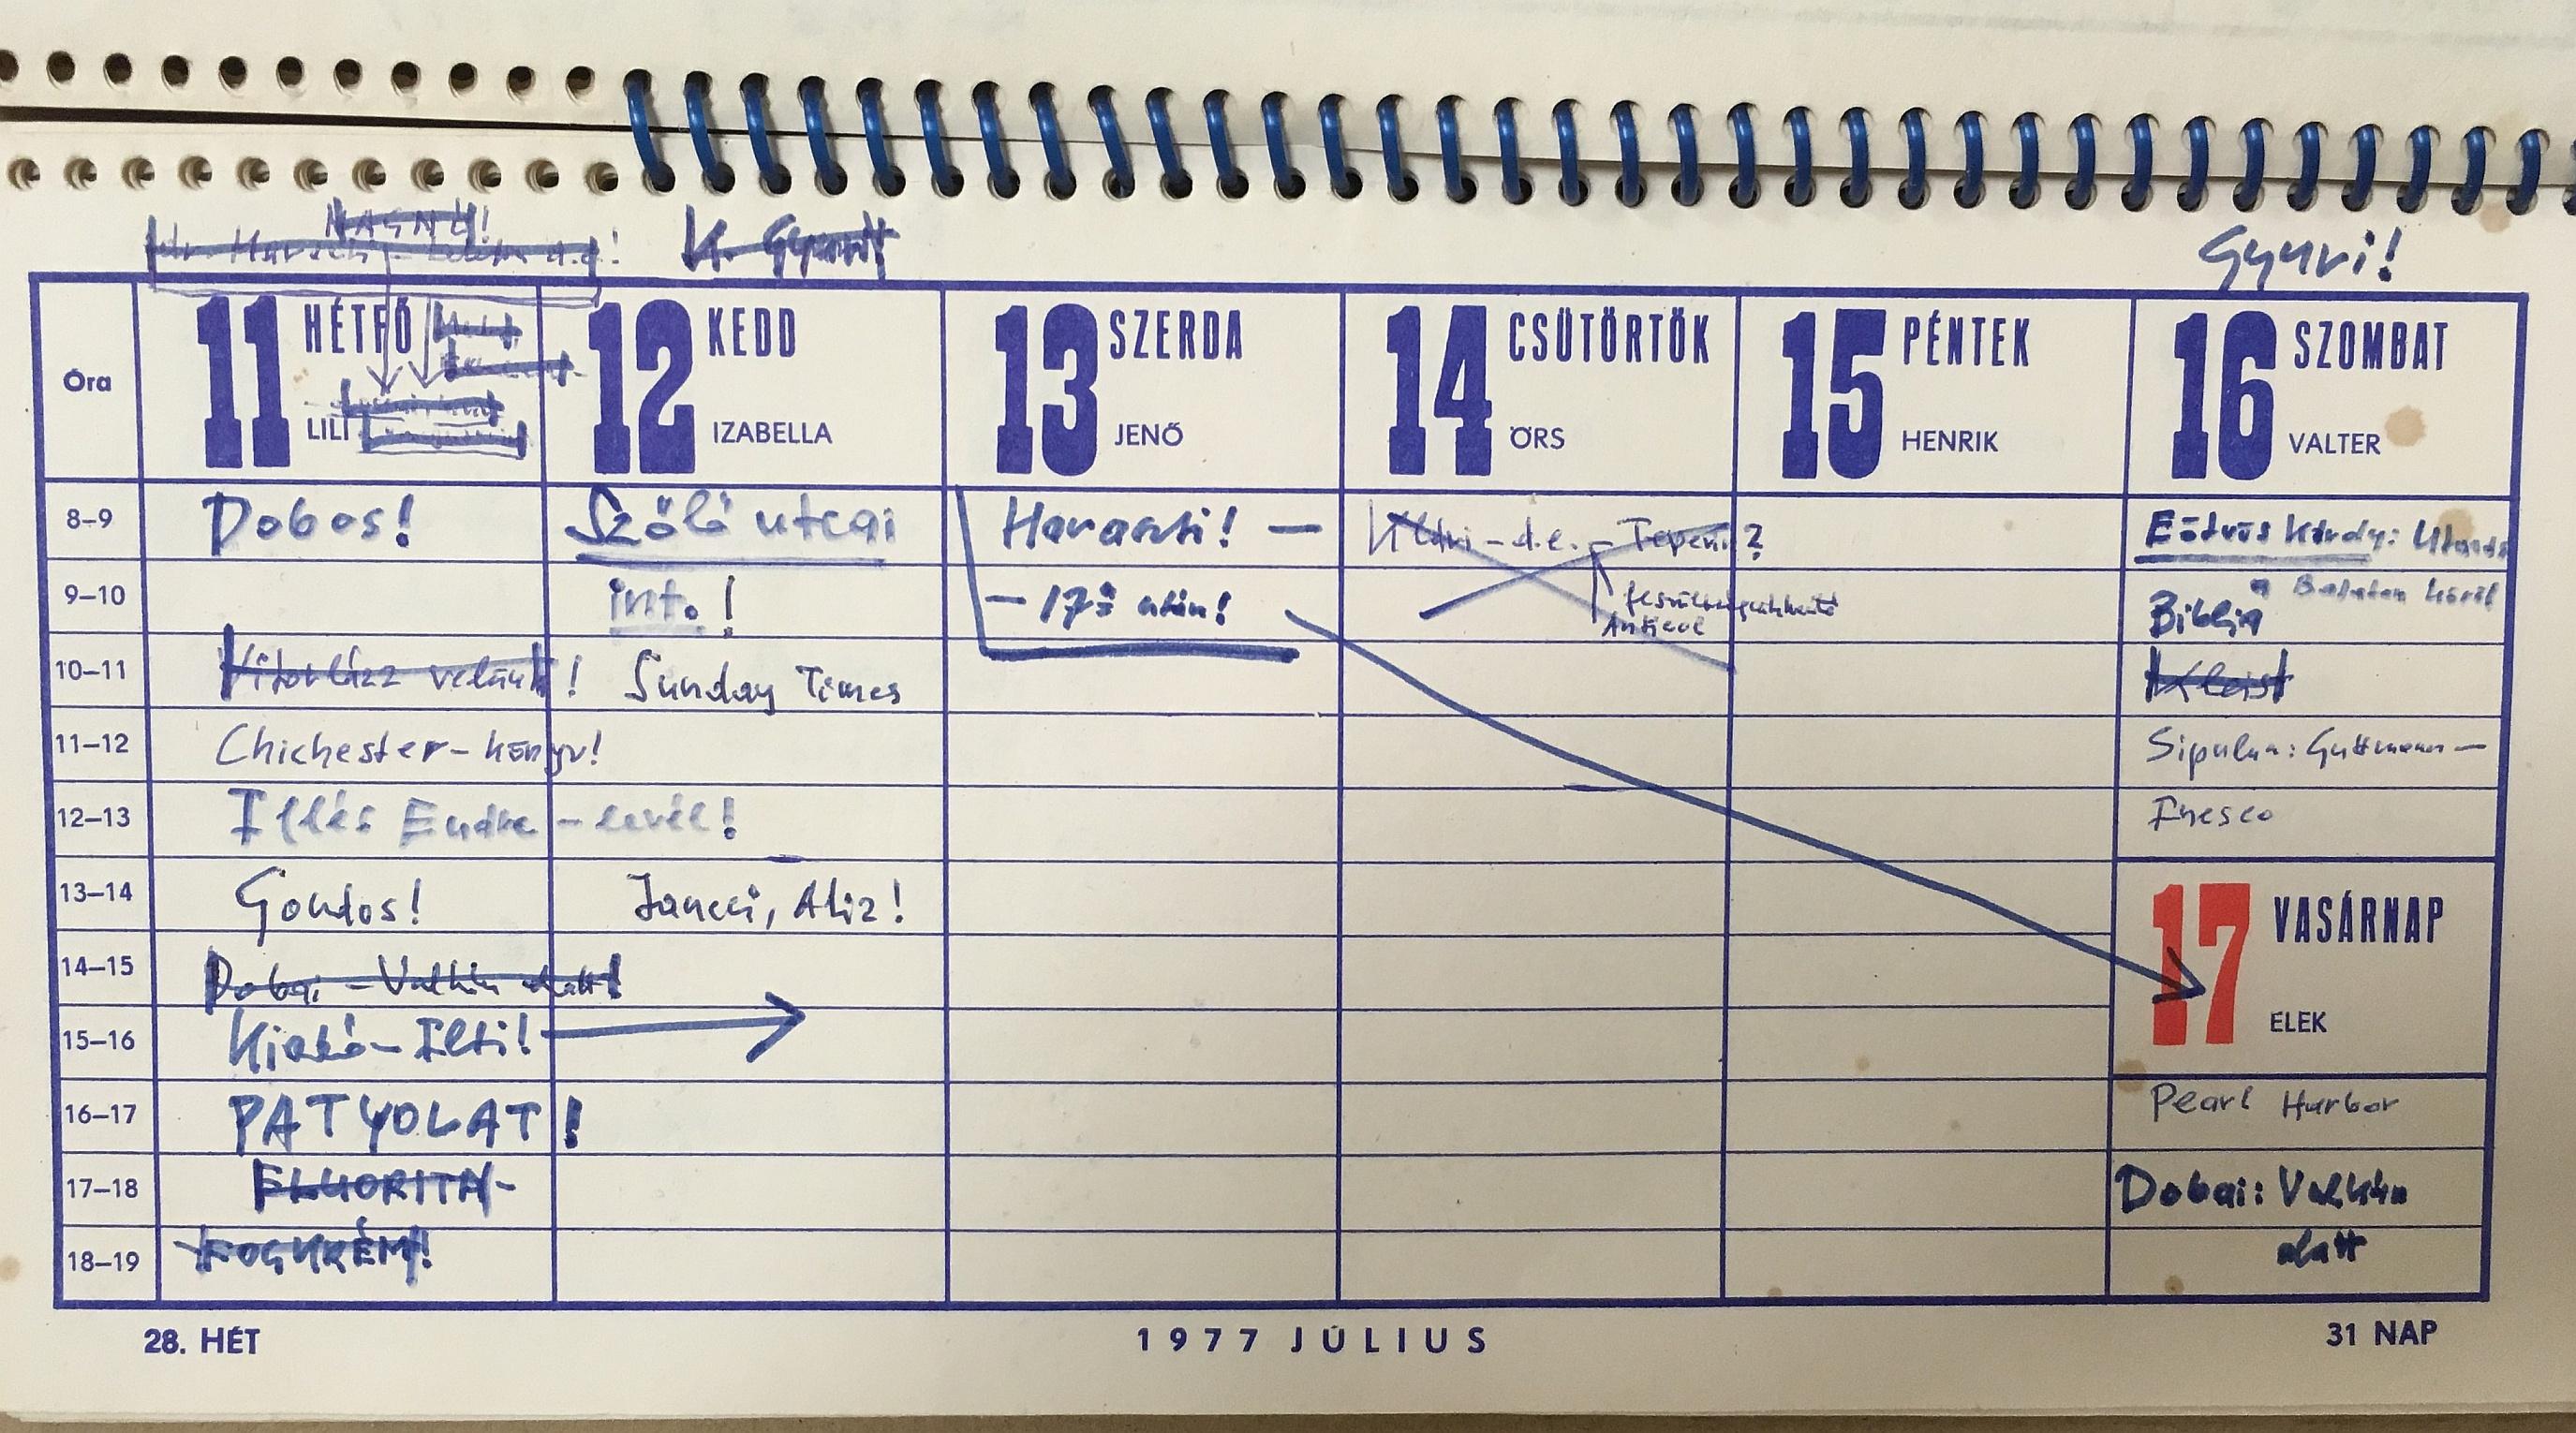 MAGNÓ!
K. Gyuri!
Gyuri!
Óra
11 HÉTFŐ
LILI
12 KEDD
IZABELLA
13 SZERDA
JENŐ
14 CSÜTÖRTÖK
ÖRS
15 PÉNTEK
HENRIK
16 SZOMBAT
VALTER
8–9
Dobos!
Szőlő utcai
Haraszti! —
Klári – d.e. –
?
Eötvös Károly: Utazás
9–10
int.!
— 17h után!
a Balaton körül
Biblia
10–11
Vitorlázz velünk!
Sunday Times
Kleist
11–12
Chichester-könyv!
Sipulus: Guttmann —
12–13
Illés Endre – levél!
Inesco
13–14
Gondos!
Jancsi, Aliz!
17 VASÁRNAP
ELEK
14–15
Dobai – Vulkán alatt!
15–16
Kiadó – Ilti!
16–17
PATYOLAT!
Pearl Harbor
17–18
FLUORITA-
Dobai: Vulkán
18–19
FOGKRÉM!
alatt
28. HÉT
1977 JÚLIUS
31 NAP